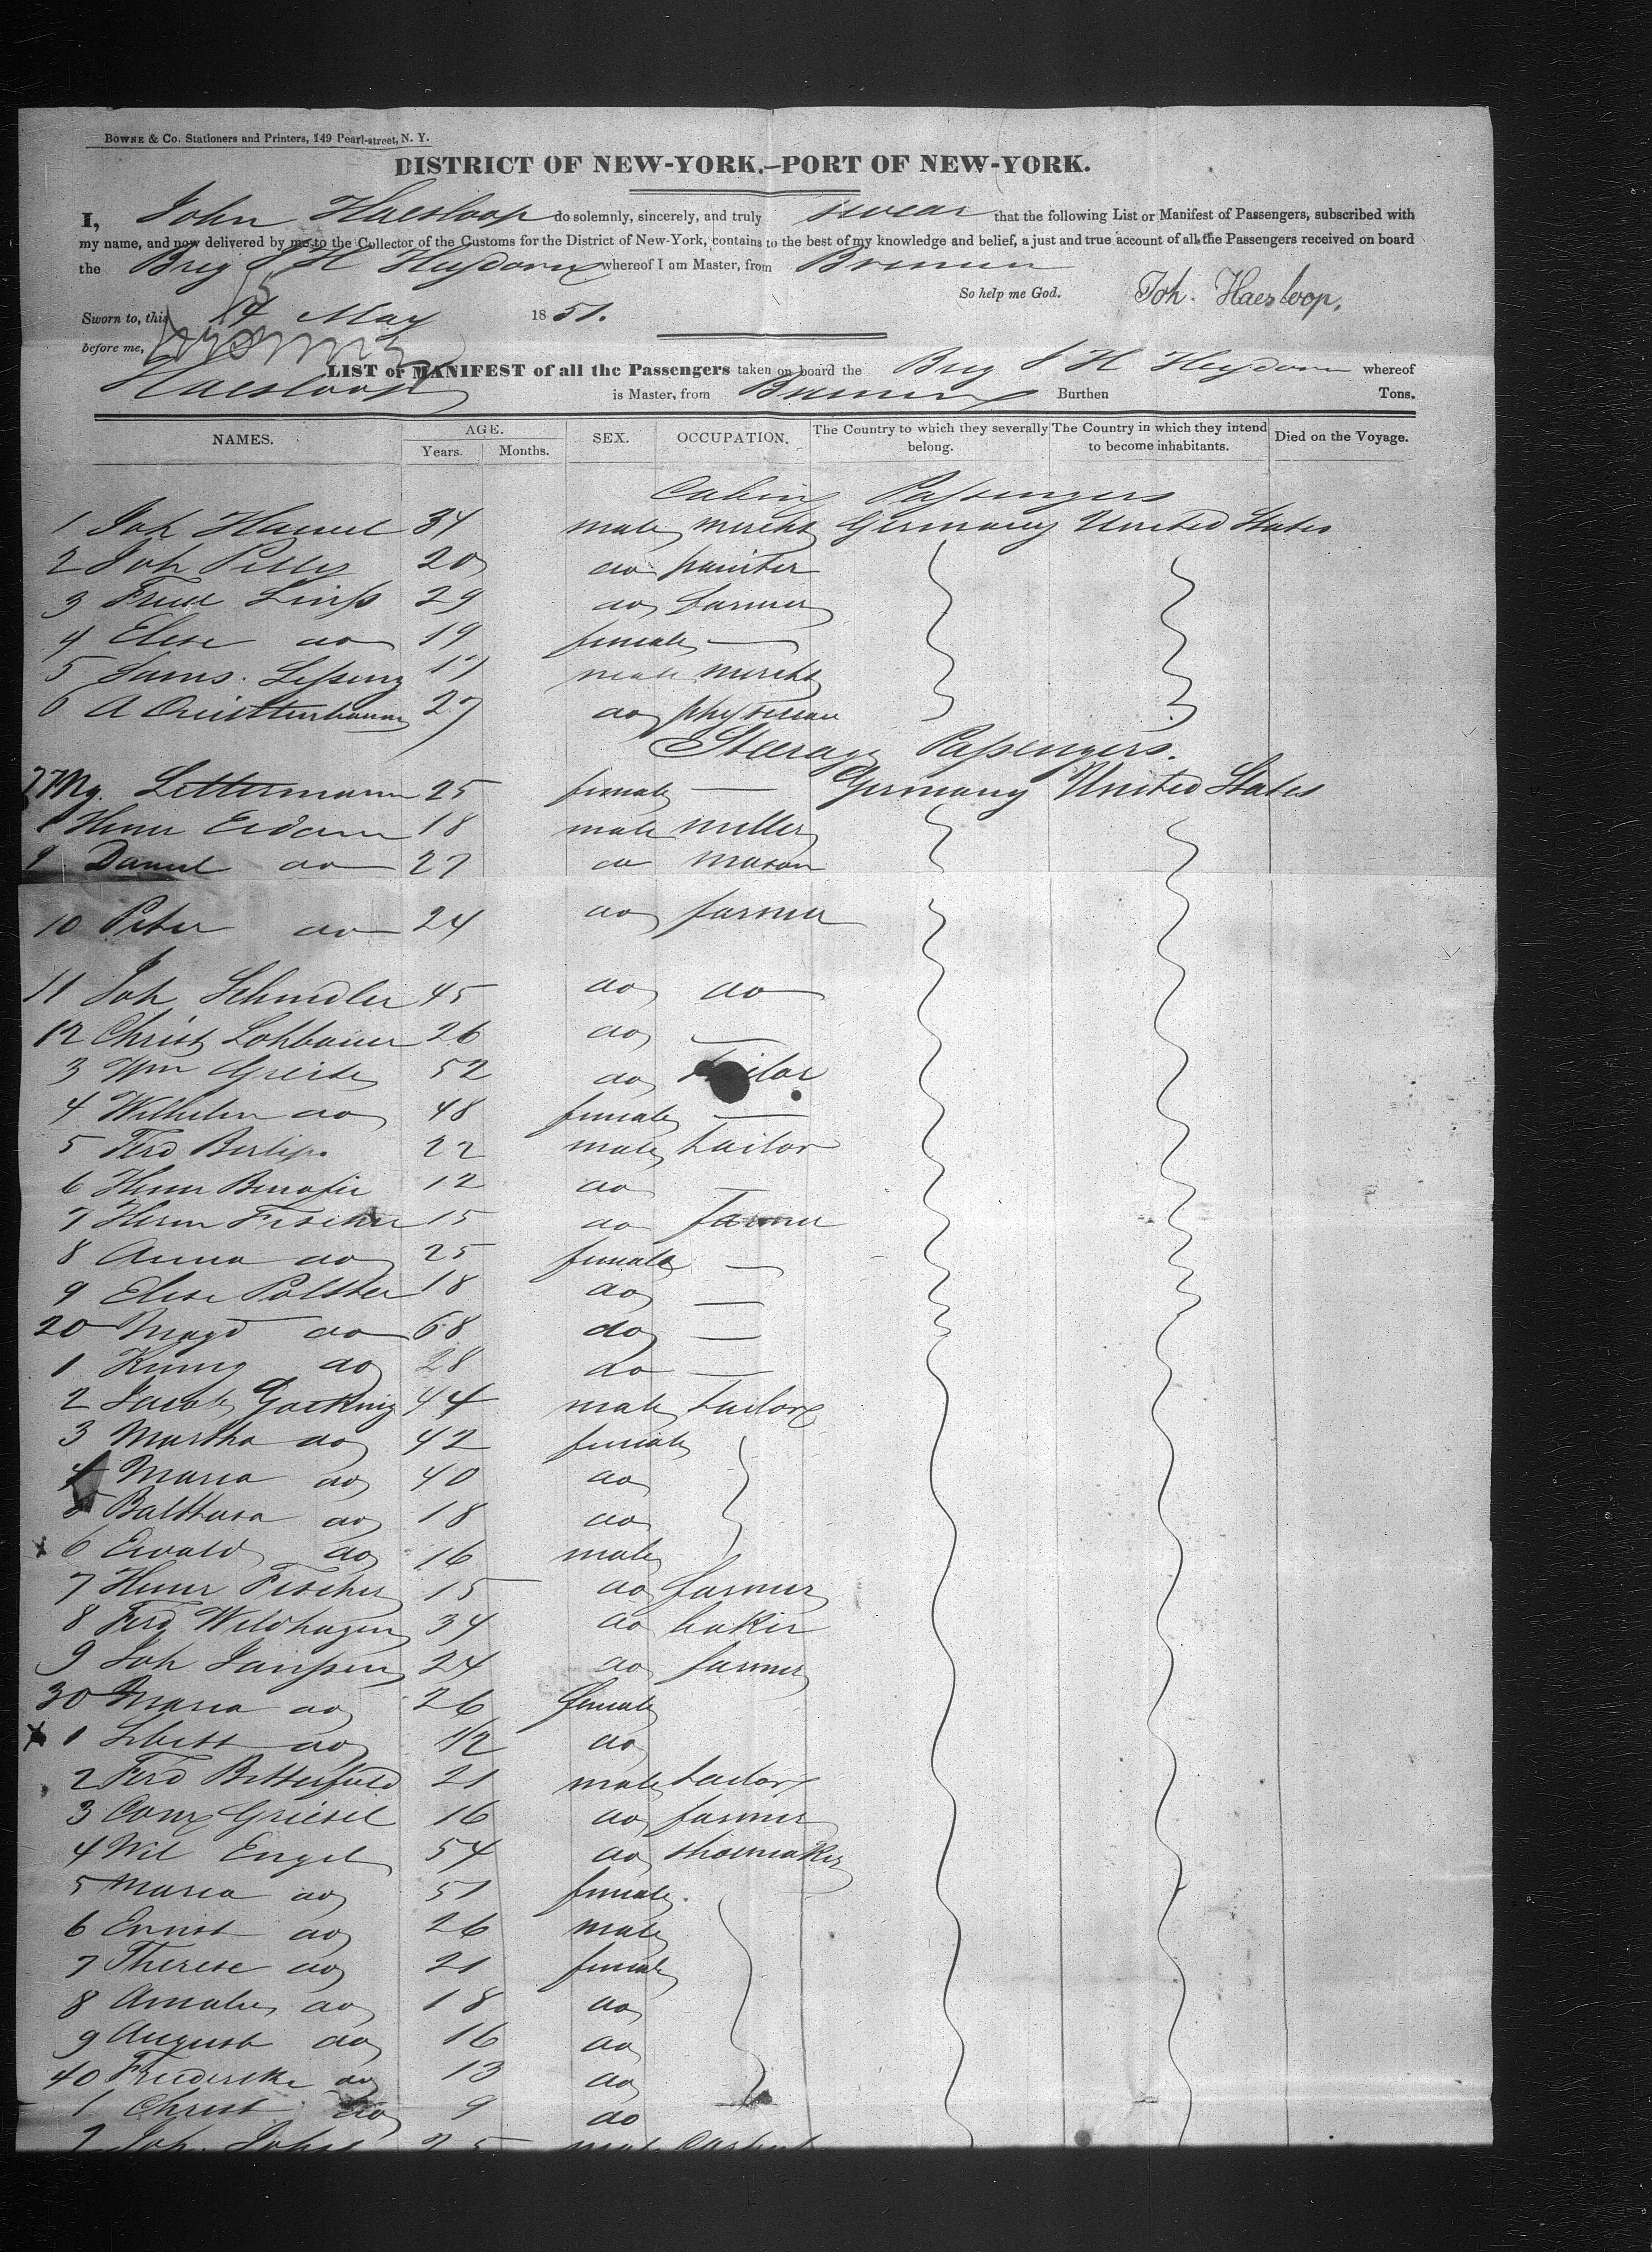 BOWNE & Co. Stationers and Printers, 149 Pearl-street, N. Y.
DISTRICT OF NEW-YORK.—PORT OF NEW-YORK.
I, John Haesloop do solemnly, sincerely, and truly swear that the following List or Manifest of Passengers, subscribed with
my name, and now delivered by me to the Collector of the Customs for the District of New-York, contains to the best of my knowledge and belief, a just and true account of all the Passengers received on board
the Brig J H Heydorn whereof I am Master, from Bremen
So help me God. Joh. Haesloop.
Sworn to, this 15 May 1851.
before me,
LIST or MANIFEST of all the Passengers taken on board the Brig J H Heydorn whereof
Haesloop is Master, from Bremen Burthen Tons.
NAMES. AGE. Years. Months. SEX. OCCUPATION. The Country to which they severally belong. The Country in which they intend to become inhabitants. Died on the Voyage.
Cabin Passengers
1 Joh 34 male mercht Germany United States
2 Joh 20 do painter
3 Fried Linss 29 do farmer
4 Elise do 19 female —
5 Lessing male mercht
6 A 27 do physician
Steerage Passengers.
7 Mg. Lettermann 25 female — Germany United States
8 Henr Eidam 18 male miller
9 Daniel do 27 do mason
10 Peter do 24 do farmer
11 Joh Schindler 45 do do
12 Christ Lohbauer 26 do —
3 Wm 52 do Tailor
4 Wilhelm do 48 female —
5 Ferd 22 male tailor
6 Henr 12 do —
7 Herm Fischer 15 do farmer
8 Anna do 25 female —
9 Elise Polster 18 do —
20 Magd do 68 do —
1 do 28 do —
2 Jacob 44 male tailor
3 Martha do 42 female
4 Maria do 40 do
5 Balthasa do 18 do
x 6 Ewald do 16 male
7 Henr Fischer 15 do farmer
8 Ferd Wildhagen 34 do baker
9 Joh Janssen 24 do farmer
30 Maria do 26 female
x 1 do 1/2 do
2 Ferd Bitterfeld 21 male tailor
3 Griesel 16 do farmer
4 Wil Engel 54 do shoemaker
5 Maria do 51 female
6 Ernst do 26 male
7 Therese do 21 female
8 Amalie do 18 do
9 August do 16 do
40 Friedericke do 13 do
1 Christ do 9 do
2 Joh.